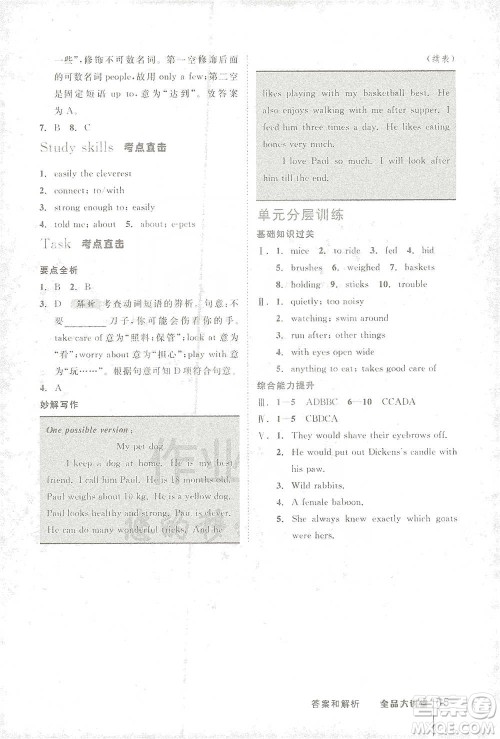 一些”,修饰不可数名词。第一空修饰后面
的可数名词 people,故用 only a few;第二空
是固定短语 up to,意为“达到”。故答案
为 A。
7. B  8. C
Study skills 考点直击
1. easily the cleverest
2. connect; to/with
3. strong enough to; carry
4. told me; about  5. about; e-pets
Task 考点直击
要点全析
3. D 解析 考查动词短语的辨析。句意:不
要______刀子,你可能会伤着你的手的。
take care of 意为“照料;保管”;look at 意为
“看”;worry about 意为“担心”;play with 意
为“玩……”。根据句意可知 D 项符合句意。
4. A
妙解写作
One possible version:
My pet dog
I keep a dog at home. He is my best
friend. I call him Paul. He is 18 months old.
Paul weighs about 10 kg. He is very clever.
Paul looks healthy and strong. Paul can
do many wonderful things. And he
(续表)
likes playing with my basketball best. He
also enjoys walking with me after supper. I
feed him three times a day. He likes eating
bones very much.
I love Paul so much. I will look after
him till the end.
单元分层训练
基础知识过关
Ⅰ. 1. mice  2. to ride  3. fed  4. bid
5. brushes  6. weighed  7. baskets
8. holding  9. sticks  10. trouble
Ⅱ. 1. quietly; too noisy
2. watching; swim around
3. run after; other things
4. with eyes open wide
5. anything to eat; takes good care of
综合能力提升
Ⅲ. 1—5 ADBBC  6—10 CCADA
Ⅳ. 1—5 CBDCA
Ⅴ. 1. They would have their eyebrows off.
2. He would put out Dickens's candle with
his paw.
3. Wild animals.
4. A female baboon.
5. She always knew exactly which goats
were missing.
答案和解析 全品大讲堂